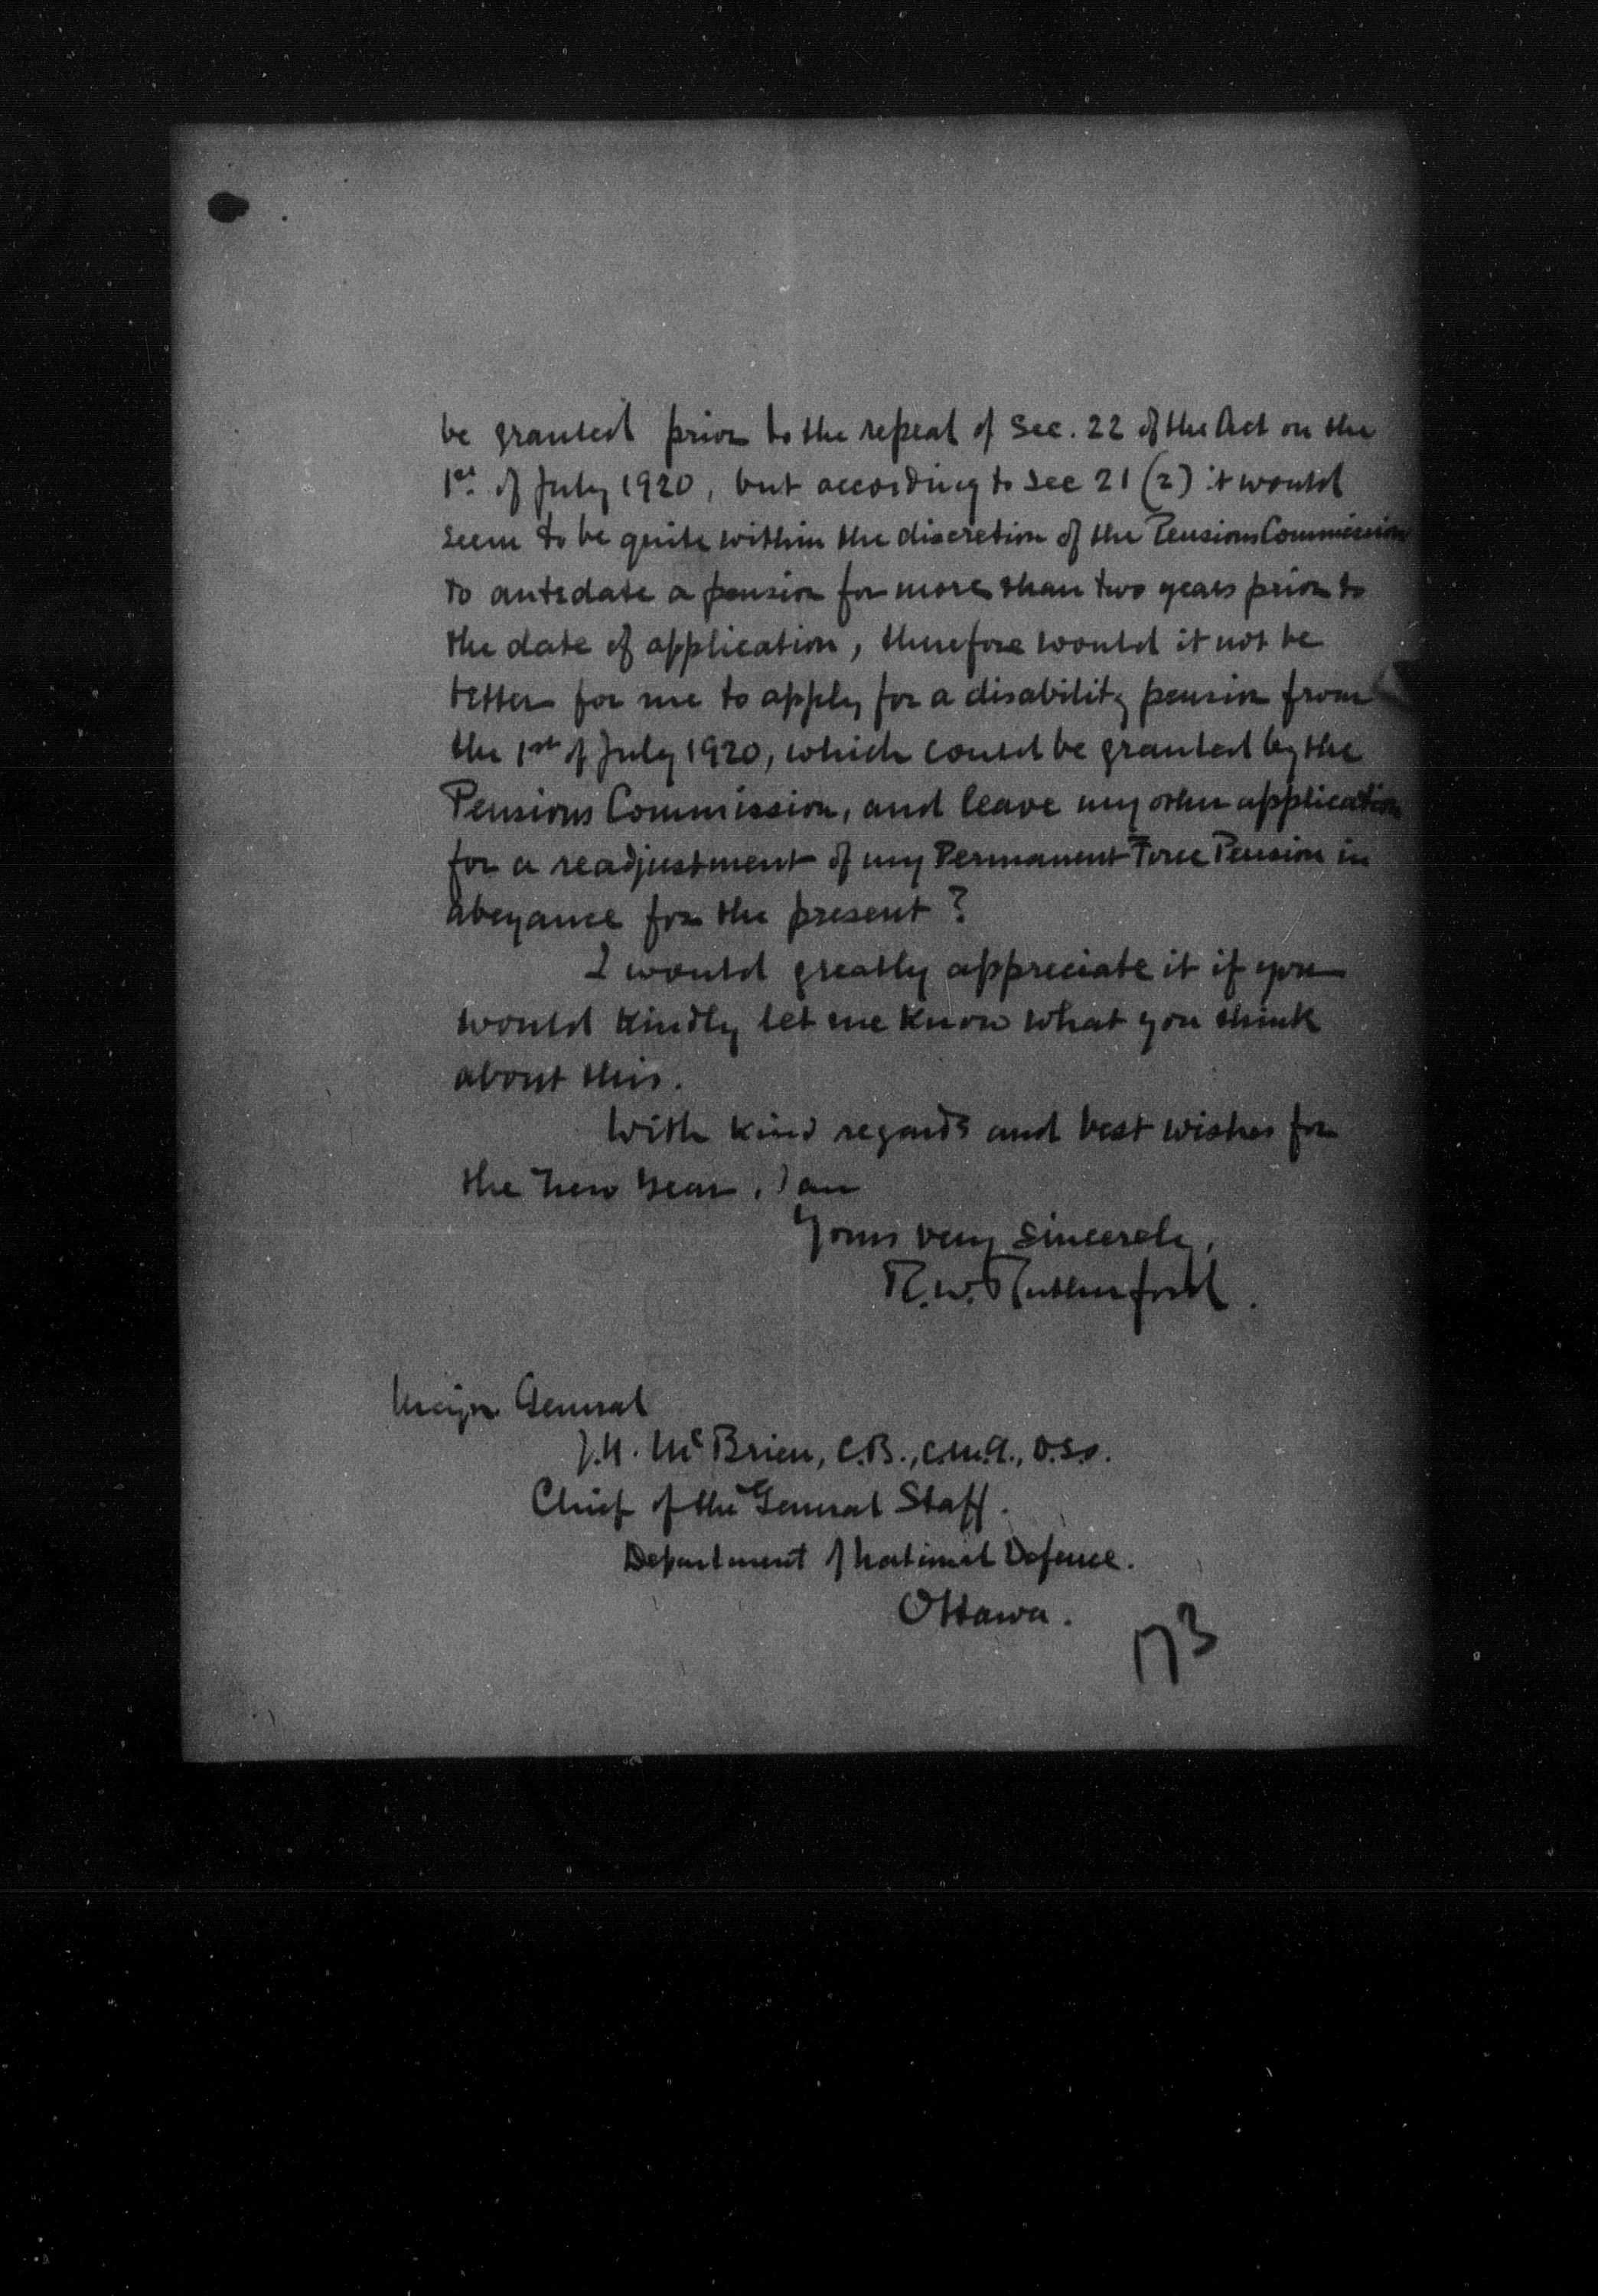 be granted prior to the repeal of Sec. 22 of the Act on the
1st. of July 1920, but according to Sec 21 (2) it would
seem to be quite within the discretion of the Pensions Commission
to antedate a pension for more than two years prior to
the date of application, therefore would it not be
better for me to apply for a disability pension from
the 1st of July 1920, which could be granted by the
Pensions Commission, and leave my other application
for a readjustment of my Permanent Force Pension in
abeyance for the present?
I would greatly appreciate it if you
would kindly let me know what you think
about this.
With kind regards and best wishes for
the New Year, I am
Yours very sincerely,
R.W. Rutherford.
Major General
J.H. McBrien, C.B., C.M.G., D.S.O.
Chief of the General Staff.
Department of National Defence.
Ottawa.
173